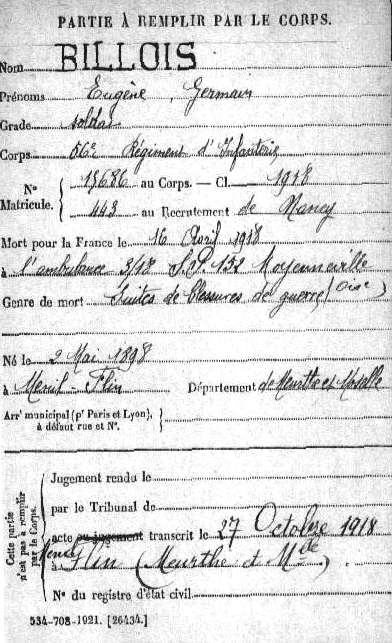 PARTIE À REMPLIR PAR LE CORPS.
Nom BILLOIS
Prénoms Eugène, Germain
Grade soldat
Corps 56e Régiment d'Infanterie
No 15686 au Corps. — Cl. 1918
Matricule. 443 au Recrutement de Nancy
Mort pour la France le 16 Avril 1918
à l'ambulance 3/18 S.P. 152 Moyenneville
Genre de mort Suites de blessures de guerre (Oise)
Né le 2 Mai 1898
à Menil-Flin Département de Meurthe et Moselle
Arrt municipal (pr Paris et Lyon),
à défaut rue et No.
Cette partie
n'est pas à remplir
par le Corps.
Jugement rendu le
par le Tribunal de
acte ou jugement transcrit le 27 Octobre 1918
à Menil Flin (Meurthe et Mlle)
No du registre d'état civil
534-708-1921. [26434.]